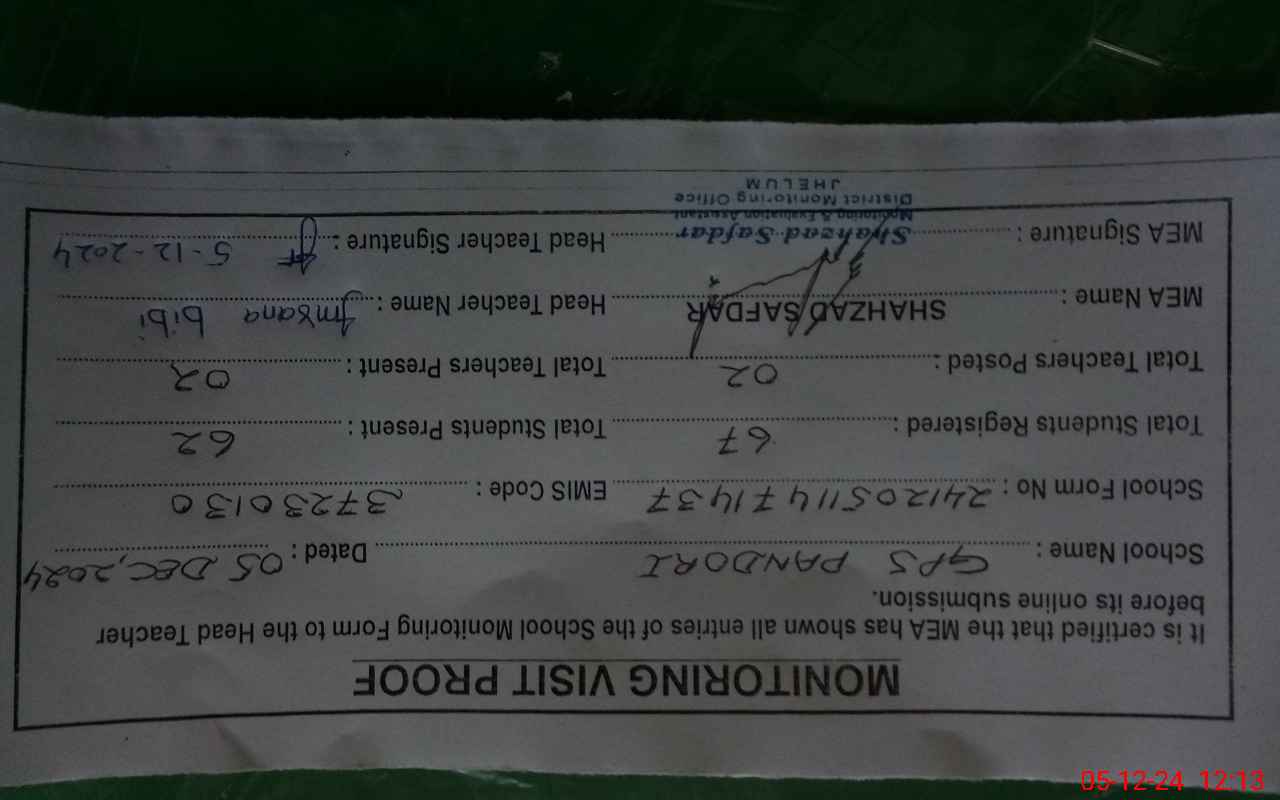 MONITORING VISIT PROOF
It is certified that the MEA has shown all entries of the School Monitoring Form to the Head Teacher
before its online submission.
School Name : GPS PANDORI Dated : 05 DEC, 2024
School Form No : 241205114714 37 EMIS Code : 37230130
Total Students Registered : 67 Total Students Present : 62
Total Teachers Posted : 02 Total Teachers Present : 02
MEA Name : SHAHZAD SAFDAR Head Teacher Name : Imrana bibi
MEA Signature : Shahzad Safdar Head Teacher Signature : 5-12-2024
Monitoring & Evaluation Assistant
District Monitoring Office
JHELUM
05-12-24 12:13